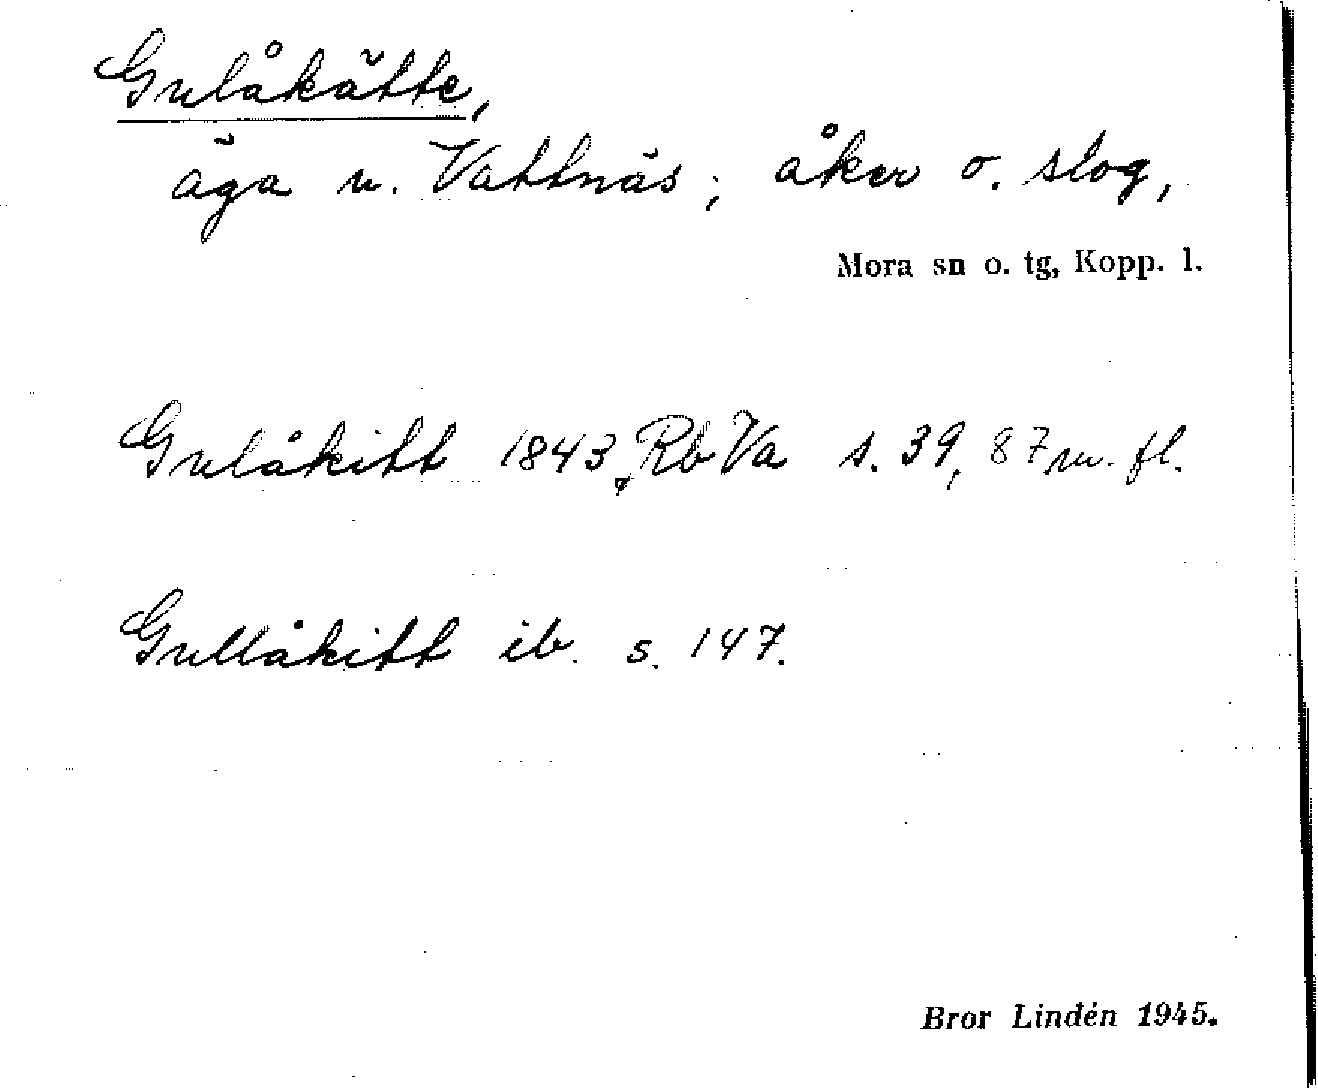 Gulåkätte,
äga v. Vattnäs; åker o. slog,
Mora sn o. tg, Kopp. l.
Gulåkitt 1843, Rb Va s. 39, 87 m. fl.
Gullåkitt ib. s. 147.
Bror Lindén 1945.